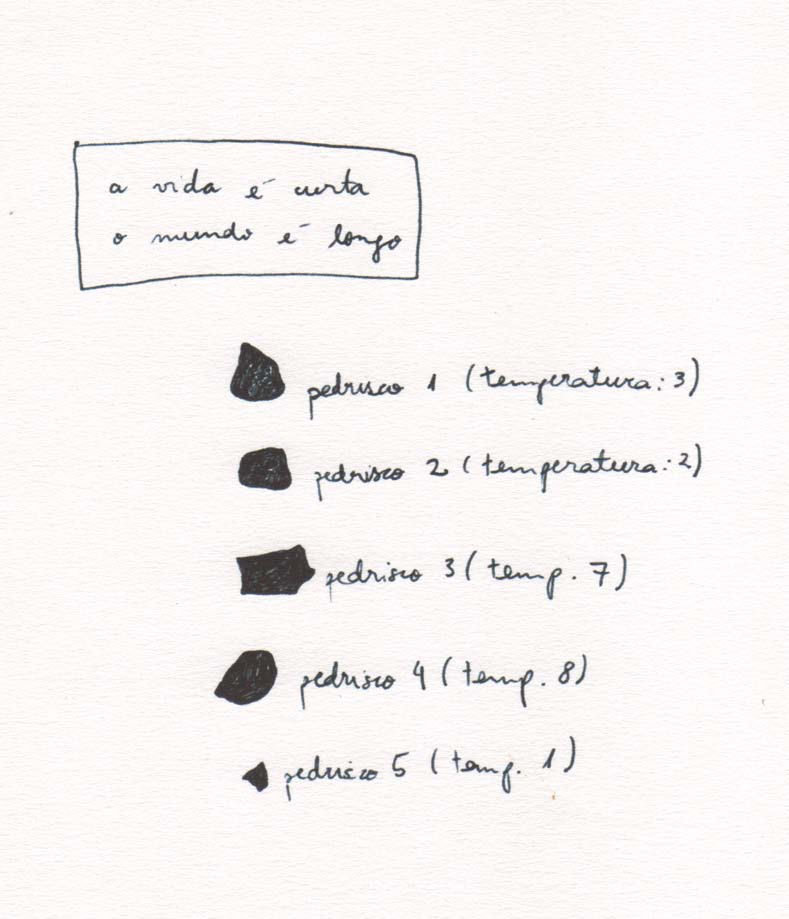 a vida é curta
o mundo é longo
pedrisco 1 (temperatura: 3)
pedrisco 2 (temperatura: 2)
pedrisco 3 (temp. 7)
pedrisco 4 (temp. 8)
pedrisco 5 (temp. 1)